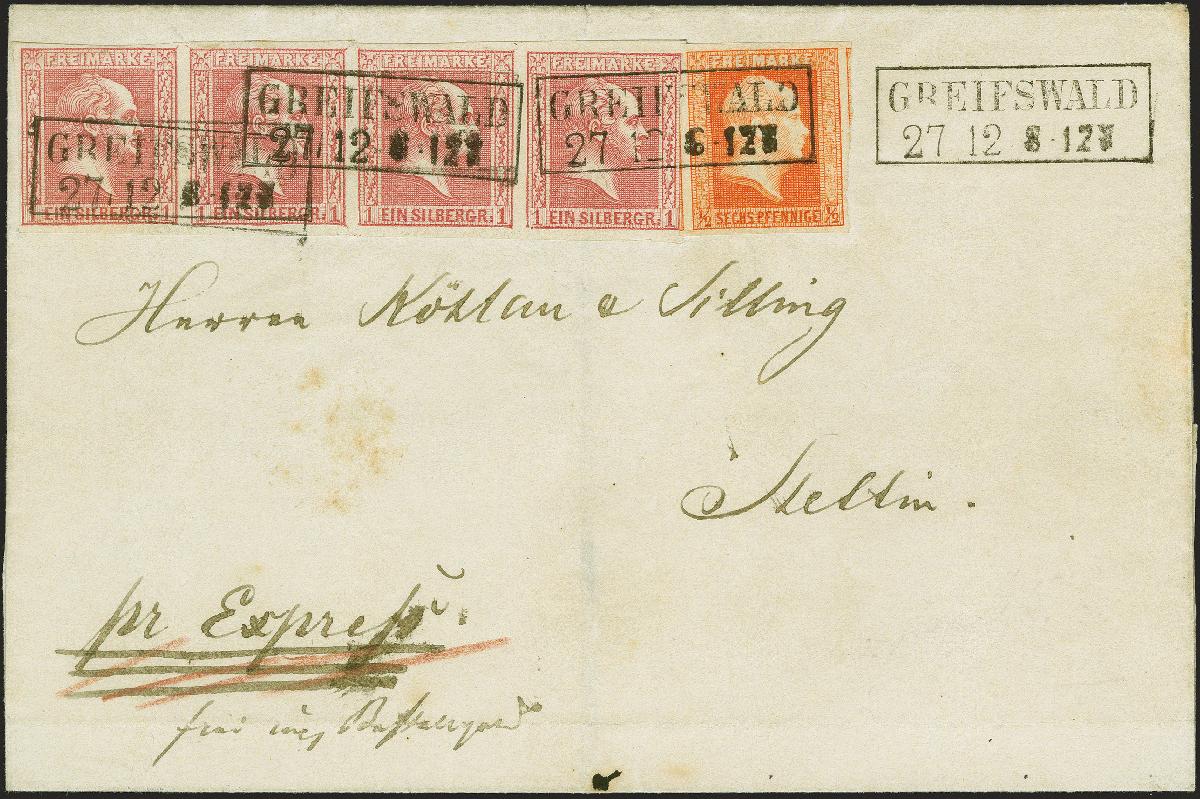 FREIMARKE FREIMARKE FREIMARKE FREIMARKE FREIMARKE
GREIFSWALD
27 12 8 · 12
GREIFSWALD
27 12 8 · 12
GREIFSWALD
27 12 8 · 12
GREIFSWALD
27 12 8 · 12
EIN SILBERGR. 1
1 EIN SILBERGR. 1
1 EIN SILBERGR. 1
1 EIN SILBERGR. 1
½ SECHS PFENNIGE ½
Herren & Silling
Stettin.
pr Express.
frei incl Bestellgeld